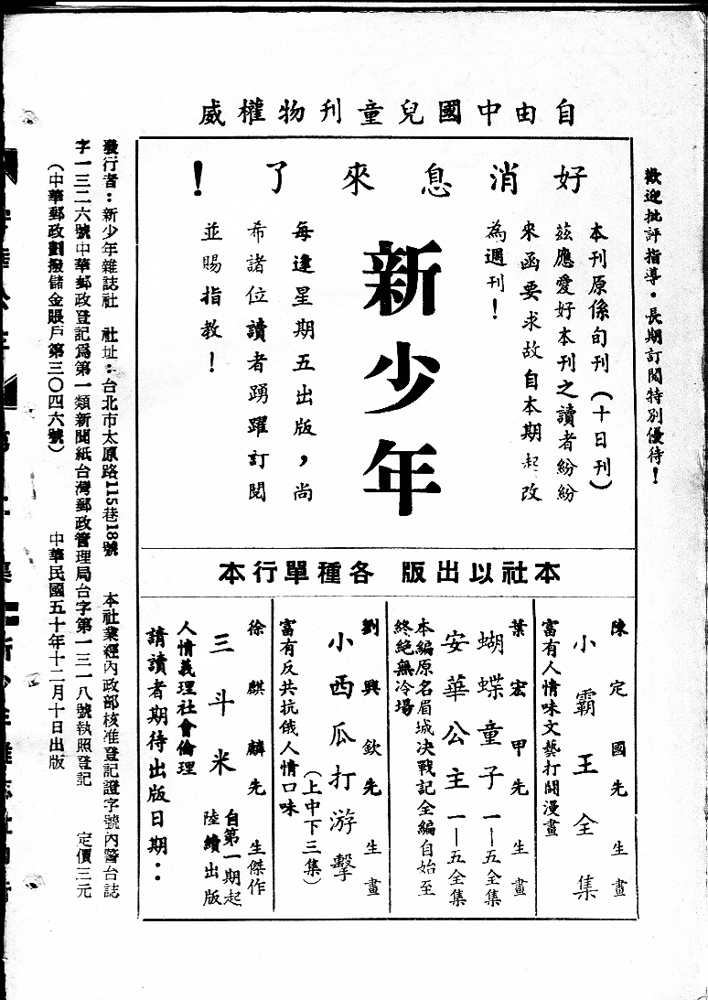 歡迎批評指導・長期訂閱特別優待！
自由中國兒童刊物權威
好消息來了！
本刊原係旬刊（十日刊）
茲應愛好本刊之讀者紛紛
來函要求故自本期起改
為週刊！
新少年
每逢星期五出版，尚
希諸位讀者踴躍訂閱
並賜指教！
本社以出版 各種單行本
陳定國先生畫
小霸王全集
富有人情味文藝打鬪漫畫
葉宏甲先生畫
蝴蝶童子 一—五全集
安華公主 一—五全集
本編原名眉城決戰記全編自始至
終絕無冷場
劉興欽先生畫
小西瓜打游擊
（上中下三集）
富有反共抗俄人情口味
徐麒麟先生傑作
三斗米
自第一期起
陸續出版
人情義理社會倫理
請讀者期待出版日期：：
發行者：新少年雜誌社 社址：台北市太原路115巷18號 本社業經內政部核准登記證字號內警台誌
字一三二六號中華郵政登記為第一類新聞紙台灣郵政管理局台字第一三一八號執照登記 定價三元
（中華郵政劃撥儲金賬戶第三〇四六號） 中華民國五十年十二月十日出版